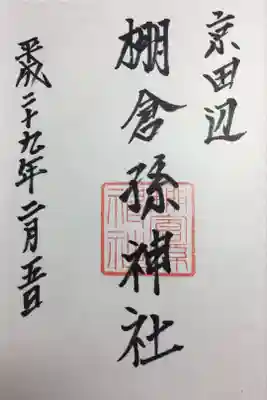 京田辺
棚倉孫神社
平成二十九年二月五日